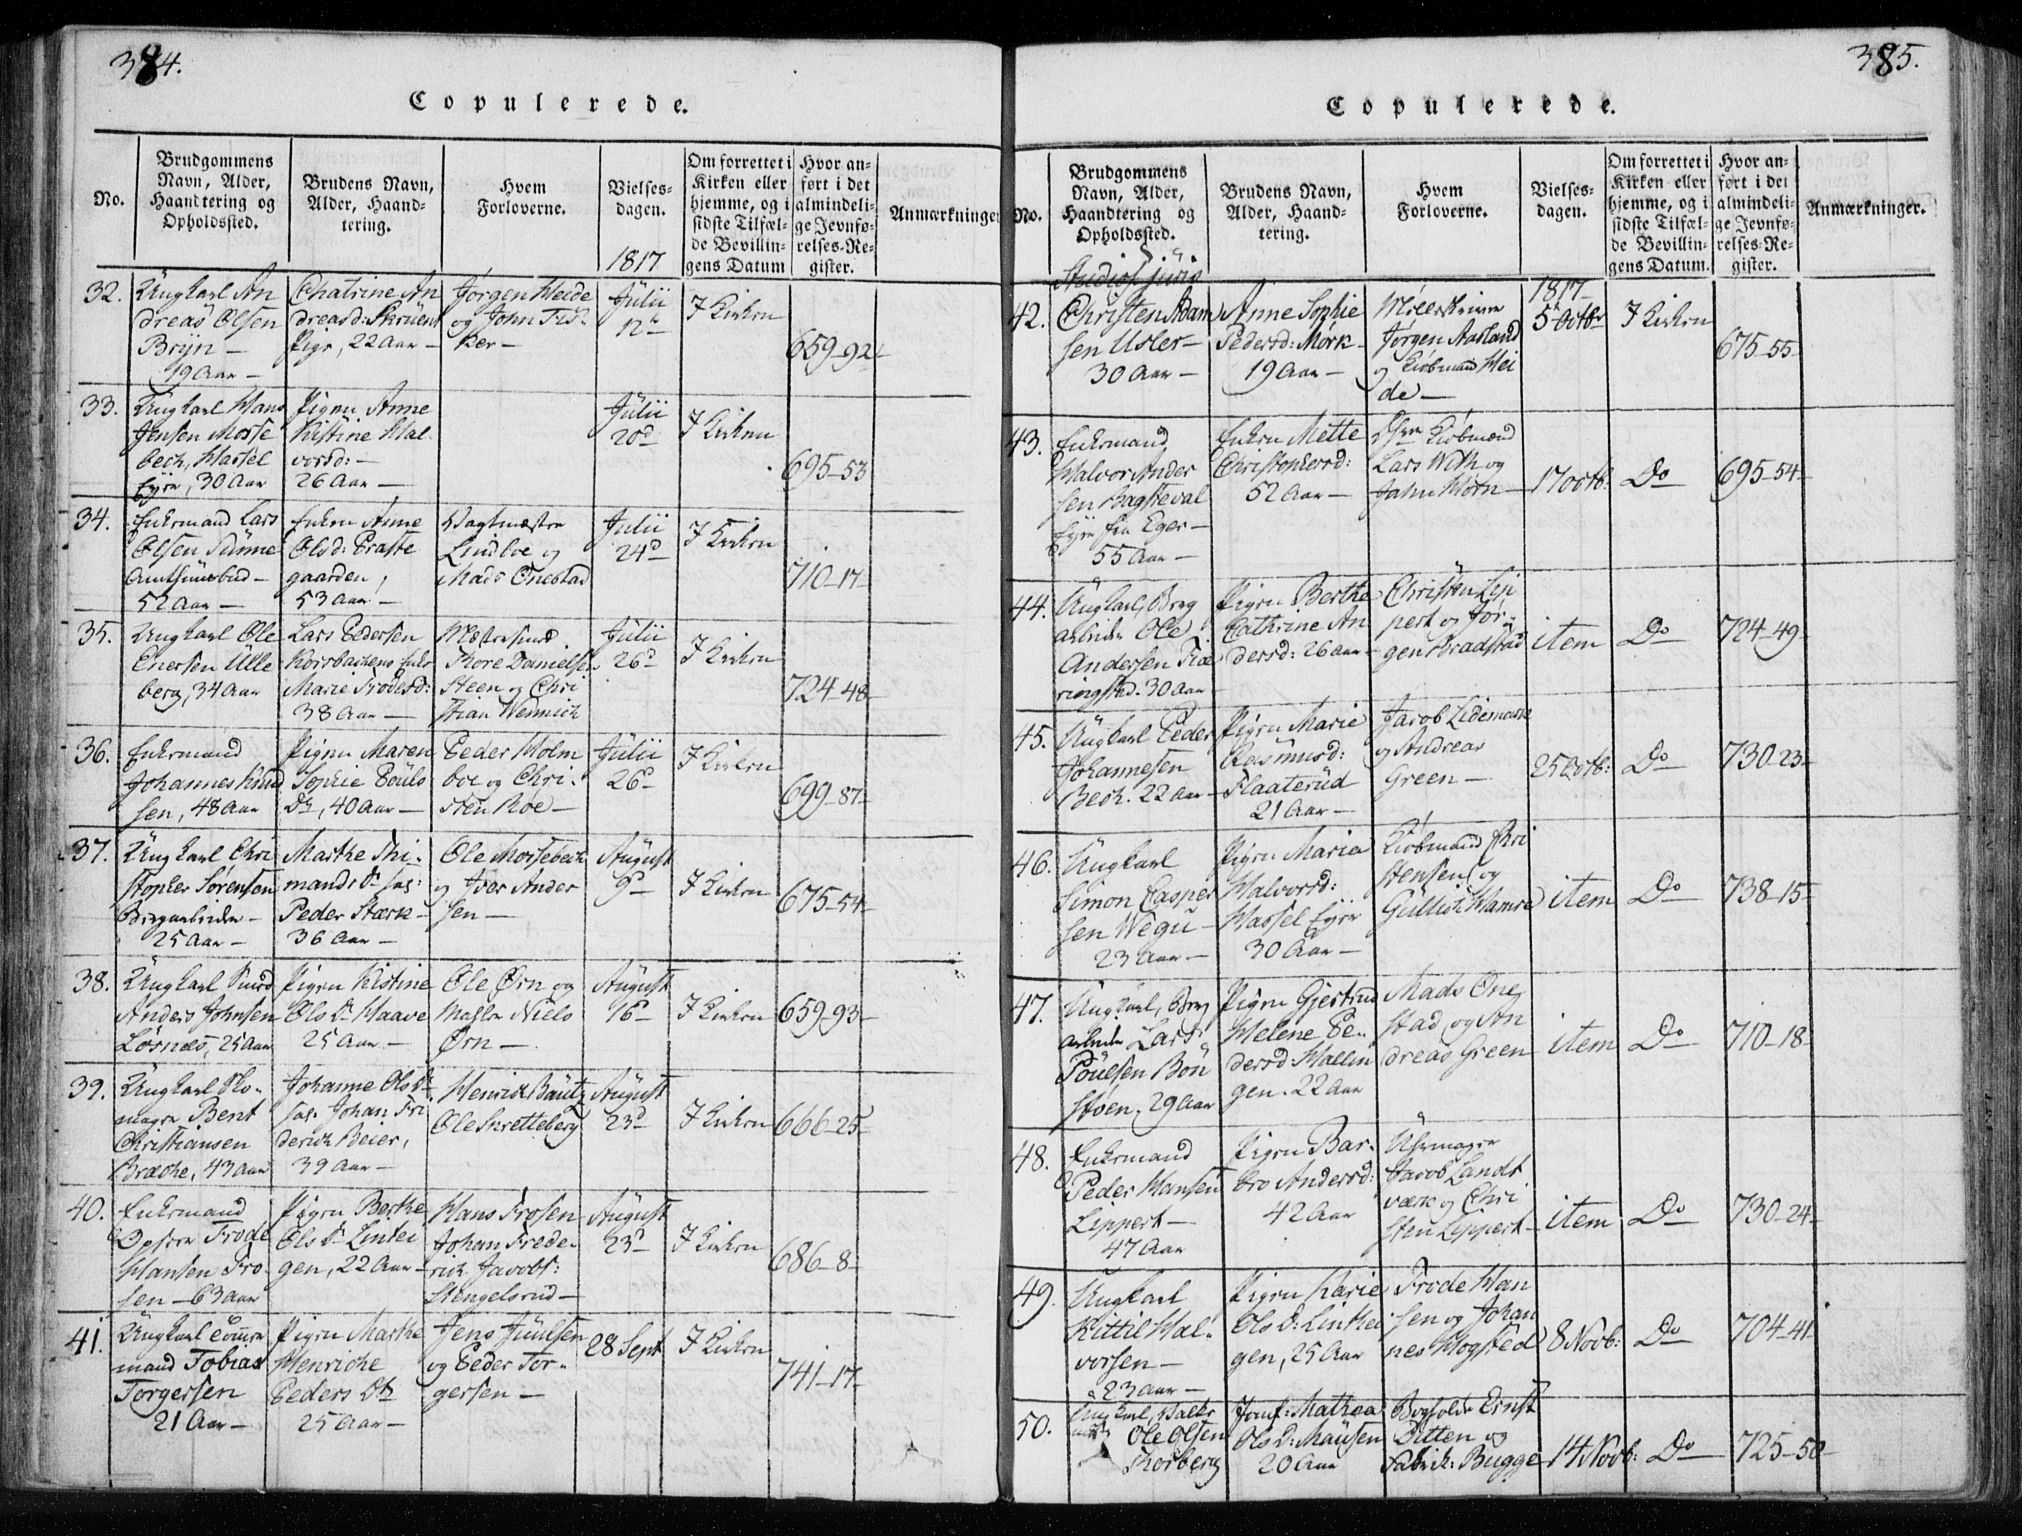 384.
Copulerede.
No.
Brudgommens
Navn, Alder,
Haandtering og
Opholdssted.
Brudens Navn,
Alder, Haand-
tering.
Hvem
Forloverne.
Vielses-
dagen.
1817
Om forrettet i
Kirken eller
hjemme, og i
sidste Tilfæl-
de Bevillin-
gens Datum
Hvor an-
ført i det
almindeli-
ge Jevnfø-
relses-Re-
gister.
Anmærkninger
32.
Ungkarl An
dreas Olsen
Bryn —
19 Aar —
Chatrine An
dreasd: Skruens
Pige, 22 Aar —
Jørgen Heide
og John Fis-
ker —
Julii
12te
I Kirken
659-92
33.
Ungkarl Hans
Jensen Mosse
bech, Hassel
Ejer, 30 Aar
Pigen Anne
Kistine Hal
vorsd: —
26 Aar —
Julii
20d
I Kirken
695-53
34.
Enkemand Lars
Olsen Sunne
52 Aar —
Enken Anne
Olsd: Præste
gaarden,
53 Aar —
Vagtmester
Lindboe og
Mads Onestad
Julii
24d
I Kirken
710-17
35.
Ungkarl Ole
Enersen Ulle
berg, 34 Aar
Lars Pedersen
Korsbachens Enke
Marie Frodesd:
38 Aar —
Mestersmed
Thore Danielsen
Steen og Chri
stian Wennich
Julii
26d
I Kirken
724-48
36.
Enkemand
Johannes Knud
sen, 48 Aar
Pigen Maren
Sophie Pouls
Dr, 40 Aar —
Peder Holm
boe og Chri-
sten Roe —
Julii
26d
I Kirken
699-87
37.
Ungkarl Chri
stopher Sørensen
Bergarbeider —
25 Aar —
Marthe Thi-
mandsDr sal:
Peder Stærk —
36 Aar —
Ole Mossebech
og Iver Ander
sen —
August
9d
I Kirken
675-54
38.
Ungkarl Smed
Anders Johnsen
Losnes, 25 Aar
Pigen Kistine
OlsDr Haave
25 Aar —
Ole Ørn og
Niels
Ørn —
August
16d
I Kirken
659-93
39.
Ungkarl Sko-
mager Bent
Christiansen
Brache, 43 Aar
Johanne OlsDr
sal. Johan Fri
derich Beier,
39 Aar —
Henrich Bautz
Ole Skretteberg
August
23d
I Kirken
666-25
40.
Enkemand
Frode
Hansen Fro-
sen — 63 Aar
Pigen Berthe
OlsDr Lintei
gen, 22 Aar —
Hans Frosen
Johan Frede-
rich Jacobs:
Stengelsrud —
August
23d
I Kirken
686-8
41.
Ungkarl Tømmer
mand Tobias
Torgersen
21 Aar —
Pigen Marthe
Henriche
PedersDr
25 Aar —
Jens Juulsen
og Peder Tor-
gersen —
28 Sept
I Kirken
741-17
385.
Copulerede.
No.
Brudgommens
Navn, Alder,
Haandtering og
Opholdssted.
Brudens Navn,
Alder, Haand-
tering.
Hvem
Forloverne.
Vielses-
dagen.
Om forrettet i
Kirken eller
hjemme, og i
sidste Tilfæl-
de Bevillin-
gens Datum.
Hvor an-
ført i det
almindeli-
ge Jevnfø-
relses-Re-
gister.
Anmærkninger.
42.
Studios: juris
Christen Adam
sen Usler —
30 Aar —
Anne Sophie
Pedersd: Mørk —
19 Aar —
Jørgen Aasland
og Kiøbmand Hei
de —
1817
5 Octbr
I Kirken
675-55
43.
Enkemand
Halvor Ander
sen Bagsteval
Ejer fra Eger —
55 Aar —
Enken Mette
Christophersd:
52 Aar —
Kiøbmænd
Lars With og
Jahn Horn —
17 octb:
Do
695-54
44.
Ungkarl, Berg
arbeider Ole
Andersen Fiæ
ringstad. 30 Aar
Pigen Berthe
Cathrine An
dersd: 26 Aar —
Christen Lip
pert og Jør-
gen Bradstad
item
Do
724-49
45.
Ungkarl Peder
Johannesen
Bech. 22 Aar —
Pigen Marie
Rasmusd:
Flaaterud
21 Aar —
Jacob Lidemark
og Andreas
Green —
25 Octb:
Do
730-23
46.
Ungkarl
Simon Casper
sen Wegu —
23 Aar —
Pigen Maria
Halvorsd:
Hassel Ejer
30 Aar —
Kiøbmand Chri
stensen og
Gullich Hamre
item
Do
738-15
47.
Ungkarl, Berg
arbeider Lars
Poulsen Bøn
stoen. 29 Aar
Pigen Gjertrud
Helene Pe-
dersd: Hallin
gen. 22 Aar
Mads One
stad, og An
dreas Green
item
Do
710-18
48.
Enkemand
Peder Hansen
Lippert —
47 Aar
Pigen Bar-
bro Andersd:
42 Aar
Uhrmager
Jacob Landt
værk og Chri
sten Lippert —
item
Do
730-24
49.
Ungkarl
Kittil Hal-
vorsen —
23 Aar —
Pigen Karie
OlsD: Linthei
gen, 25 Aar
Frode Han
sen og Johan
nes Hogsted
8 Novb:
Do
704-41
50.
Ungkarl,
Ole Olsen
Thorberg
Jomf: Mathea
OlsD: Hansen
20 Aar
Bogholder Ernst
Ditten og
Fabrik: Bugge
14 Novb:
Do
725-50